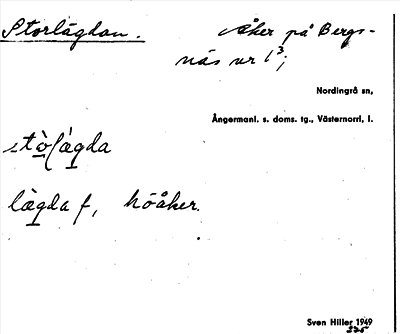 Storlägdan. Åker på Bergs-
näs nr 1³;
Nordingrå sn,
Ångermanl. s. doms. tg., Västernorrl. l.
stò̱lä̀gda
lä̀gda f, höåker.
Sven Hiller 1949